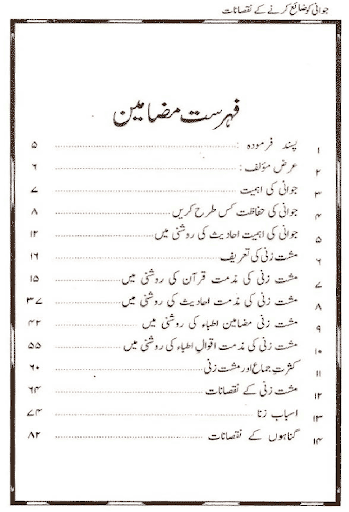 جوانی کو ضائع کرنے کے نقصانات
فہرست مضامین
۱ پسند فرمودہ : ۵
۲ عرض مؤلف : ۶
۳ جوانی کی اہمیت ۷
۴ جوانی کی حفاظت کس طرح کریں ۸
۵ جوانی کی اہمیت احادیث کی روشنی میں ۱۲
۶ مشت زنی کی تعریف ۱۶
۷ مشت زنی کی مذمت قرآن کی روشنی میں ۱۵
۸ مشت زنی کی مذمت احادیث کی روشنی میں ۳۷
۹ مشت زنی مضامین اطباء کی روشنی میں ۴۲
۱۰ مشت زنی کی مذمت اقوال اطباء کی روشنی میں ۵۵
۱۱ کثرت جماع اور مشت زنی ۶۰
۱۲ مشت زنی کے نقصانات ۶۴
۱۳ اسباب زنا ۷۴
۱۴ گناہوں کے نقصانات ۸۲